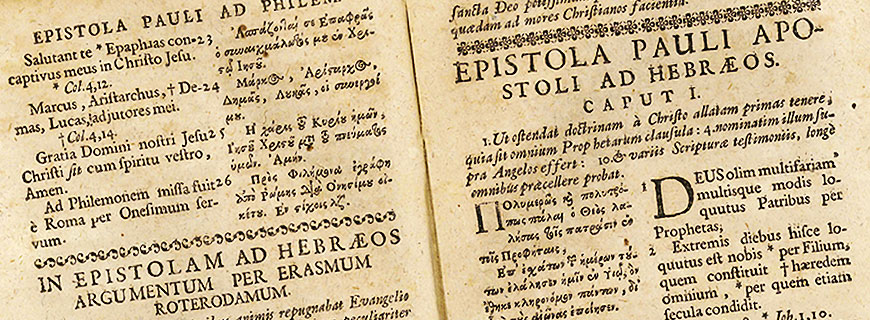 EPISTOLA PAULI AD PHILEM
Salutant te * Epaphras con-23
captivus meus in Christo Jesu.
* Col. 4, 12.
Marcus, Aristarchus, † De-24
mas, Lucas, adjutores mei.
† Col. 4, 14.
Gratia Domini nostri Jesu25
Christi sit cum spiritu vestro,
Amen.
Ad Philemonem missa fuit26
è Roma per Onesimum ser-
vum.
σε Ἐπαφρᾶς
ὁ συναιχμάλωτός μου ἐν Χρι-
στῷ Ἰησοῦ.
Μάρκος, Ἀρίσταρχος,
Δημᾶς, Λουκᾶς, οἱ συνεργοί
μου.
Ἡ χάρις τοῦ Κυρίου ἡμῶν,
Ἰησοῦ Χριστοῦ μετὰ τοῦ πνεύματος
ὑμῶν. Ἀμήν.
Πρὸς Φιλήμονα ἐγράφη
ἀπὸ Ῥώμης διὰ Ὀνησίμου οἰ-
κέτου. Ἐν στίχοις λζ.
IN EPISTOLAM AD HEBRÆOS
ARGUMENTUM PER ERASMUM
ROTERODAMUM.
animis repugnabat Evangelio
peculiariter
sancta Deo
quædam ad mores Christianos facientia.
EPISTOLA PAULI APO-
STOLI AD HEBRÆOS.
CAPUT I.
1. Ut ostendat doctrinam à Christo allatam primas tenere;
quia sit omnium Prophetarum clausula: 4. nominatim illum su-
pra Angelos effert: 10. & variis Scripturæ testimoniis, longè
omnibus præcellere probat.
Πολυμερῶς καὶ πολυτρό-
πως πάλαι ὁ Θεὸς λα-
λήσας τοῖς πατράσιν ἐν
τοῖς Προφήταις,
Ἐπ' ἐσχάτων τῶν ἡμερῶν τού-
των ἐλάλησεν ἡμῖν ἐν Υἱῷ, ὃν
ἔθηκε κληρονόμον πάντων, δι'
οὗ καὶ τοὺς αἰῶνας ἐποίησεν.
1 DEUS olim multifariam
multisque modis lo-
quutus Patribus per
Prophetas;
2 Extremis diebus hisce lo-
quutus est nobis * per Filium,
quem constituit † hæredem
omnium, * per quem etiam
secula condidit.
* Joh. 1, 10.